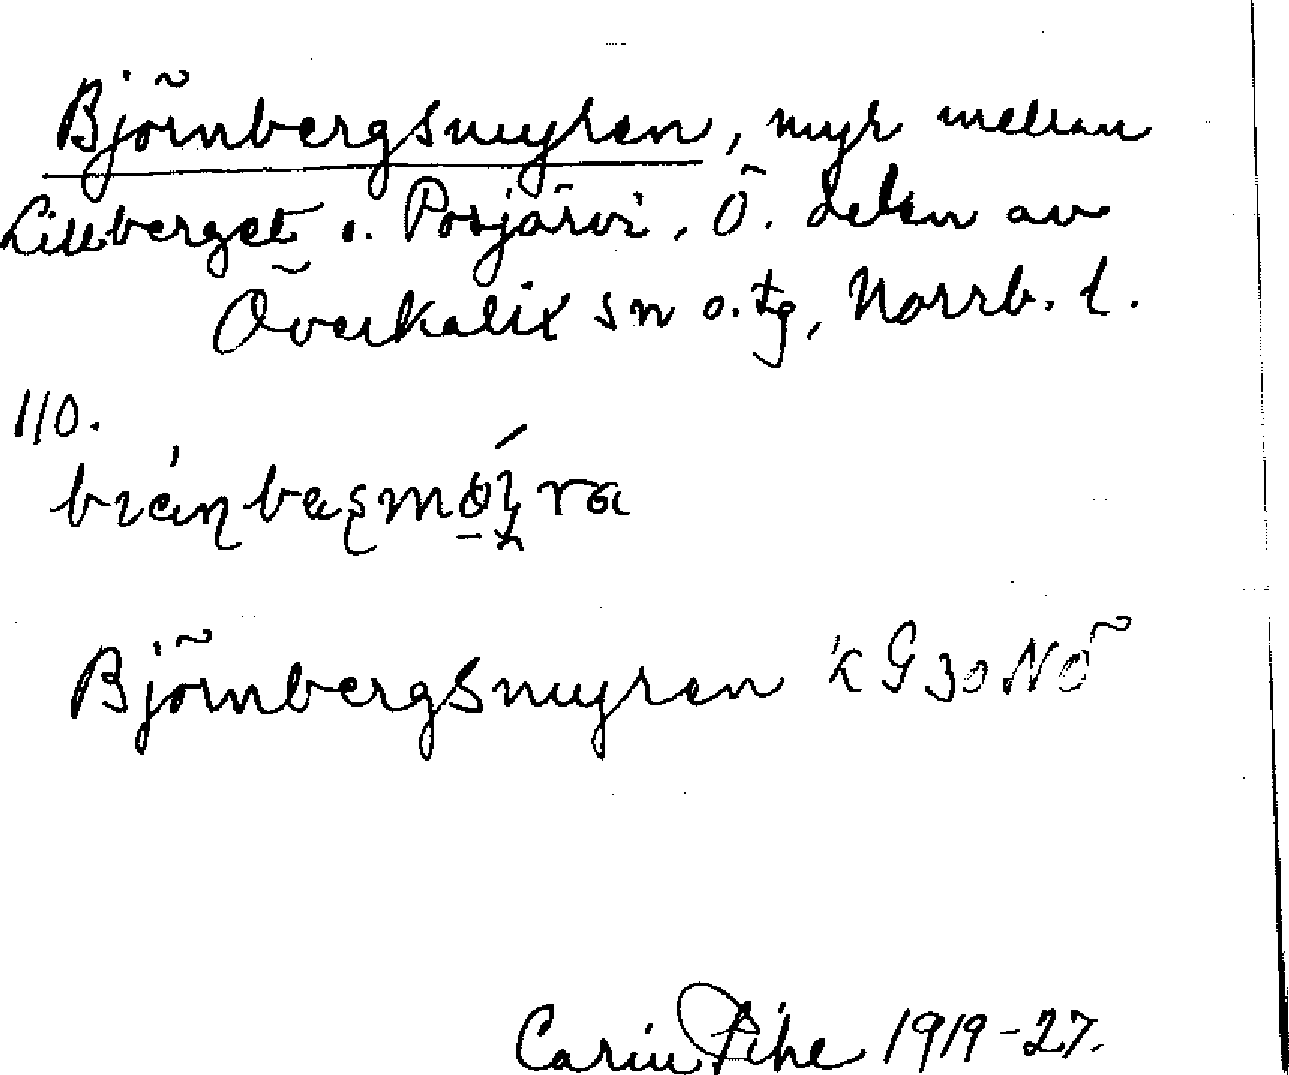 Björnbergsmyren, myr mellan
Lillberget o. Posjärvi, Ö. delen av
Överkalix sn o. tg, Norrb. l.
110.
Björnbergsmyren k G 30 NÖ
Carin Pihl 1919-27.